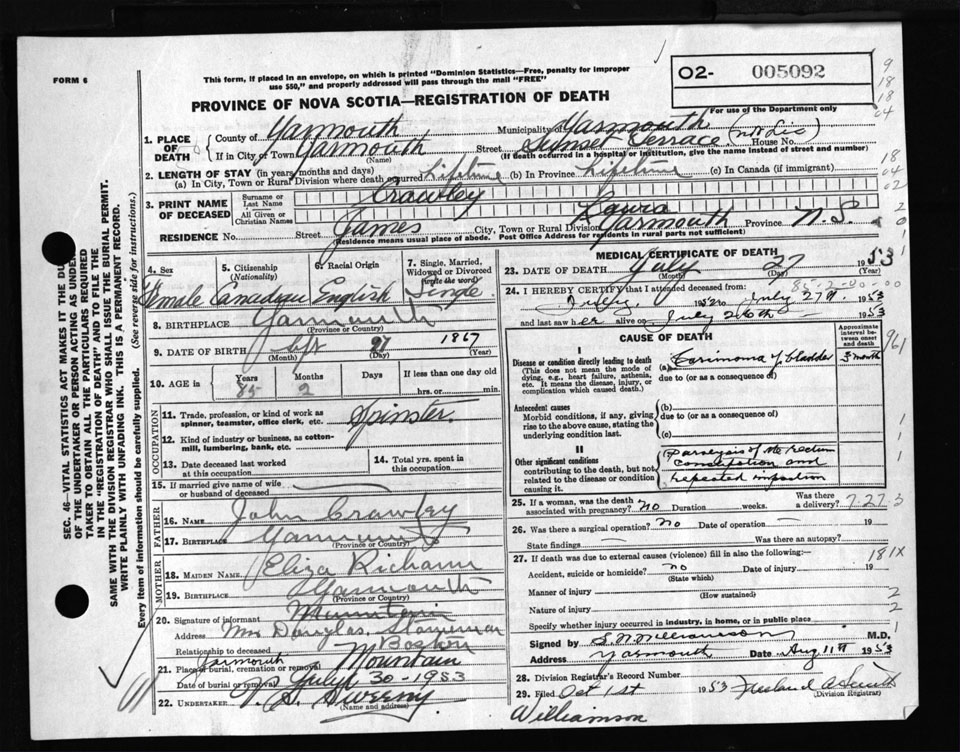 FORM 6
This form, if placed in an envelope, on which is printed "Dominion Statistics—Free, penalty for improper
use $50," and properly addressed will pass through the mail "FREE"
O2- 005092
For use of the Department only
PROVINCE OF NOVA SCOTIA—REGISTRATION OF DEATH
9
18
18
04
18
04
02
1. PLACE OF DEATH
County of Yarmouth Municipality of Yarmouth
If in City or Town Yarmouth Street Sunset Terrace House No.
(Name) (If death occurred in a hospital or institution, give the name instead of street and number)
2. LENGTH OF STAY (in years months and days)
(a) In City, Town or Rural Division where death occurred Lifetime (b) In Province Lifetime (c) In Canada (if immigrant)
3. PRINT NAME OF DECEASED
Surname or Last Name Crawley
All Given or Christian Names James Laura
RESIDENCE No. Street City, Town or Rural Division Yarmouth Province N.S.
(Residence means usual place of abode. Post Office Address for residents in rural parts not sufficient)
4. Sex Female
5. Citizenship (Nationality) Canadian
6. Racial Origin English
7. Single, Married, Widowed or Divorced (write the word) Single
8. BIRTHPLACE Yarmouth
(Province or Country)
9. DATE OF BIRTH 27 1867
(Month) (Day) (Year)
10. AGE in Years 85 Months 2 Days If less than one day old hrs. or min.
OCCUPATION
11. Trade, profession, or kind of work as spinner, teamster, office clerk, etc. Spinster
12. Kind of industry or business, as cotton-mill, lumbering, bank, etc.
13. Date deceased last worked at this occupation
14. Total yrs. spent in this occupation
15. If married give name of wife or husband of deceased
FATHER
16. NAME John Crawley
17. BIRTHPLACE Yarmouth
(Province or Country)
MOTHER
18. MAIDEN NAME Eliza
19. BIRTHPLACE Yarmouth
(Province or Country)
Mountain
20. Signature of informant Mrs Douglas
Address Boston
Relationship to deceased
21. Place of burial, cremation or removal Yarmouth Mountain
Date of burial or removal July 30 - 1953
22. UNDERTAKER V. S. Sweeny
(Name and address)
MEDICAL CERTIFICATE OF DEATH
23. DATE OF DEATH July 27 1953
(Month) (Day) (Year)
85-2-00-00
24. I HEREBY CERTIFY that I attended deceased from:
July 1952 to July 27th 1953
and last saw her alive on July 26th 1953
CAUSE OF DEATH
Approximate interval between onset and death
I
Disease or condition directly leading to death
(This does not mean the mode of dying, e.g., heart failure, asthenia, etc. It means the disease, injury, or complication which caused death.)
(a) Carcinoma of bladder 3 month
due to (or as a consequence of)
Antecedent causes
Morbid conditions, if any, giving rise to the above cause, stating the underlying condition last.
(b)
due to (or as a consequence of)
(c)
II
Other significant conditions contributing to the death, but not related to the disease or condition causing it.
Paralysis of the rectum
Constipation and
repeated impaction
25. If a woman, was the death associated with pregnancy? no Duration weeks. Was there a delivery?
7-27-3
26. Was there a surgical operation? no Date of operation 19
State findings Was there an autopsy?
27. If death was due to external causes (violence) fill in also the following:
181X
Accident, suicide or homicide? no Date of injury 19
(State which)
Manner of injury 2
(How sustained)
Nature of injury 2
Specify whether injury occurred in industry, in home, or in public place
Signed by S. W. Williamson M.D.
Address Yarmouth Date Aug 11th 1953
28. Division Registrar's Record Number
29. Filed Oct 1st 1953
(Division Registrar)
Williamson
SEC. 46—VITAL STATISTICS ACT MAKES IT THE DU
OF THE UNDERTAKER OR PERSON ACTING AS UNDER
TAKER TO OBTAIN ALL THE PARTICULARS REQUIRED
IN THE "REGISTRATION OF DEATH" AND TO FILE THE
SAME WITH THE DIVISION REGISTRAR WHO SHALL ISSUE THE BURIAL PERMIT.
WRITE PLAINLY WITH UNFADING INK. THIS IS A PERMANENT RECORD.
Every item of information should be carefully supplied. (See reverse side for instructions.)